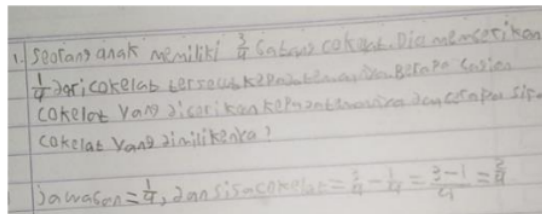 1. Seorang anak memiliki 3/4 batang cokelat. Dia memberikan
1/4 dari cokelat tersebut kepada temannya. Berapa bagian
cokelat yang diberikan kepada temannya dan berapa sisa
cokelat yang dimilikinya?
Jawaban = 1/4, dan sisa cokelat = 3/4 - 1/4 = 3-1/4 = 2/4